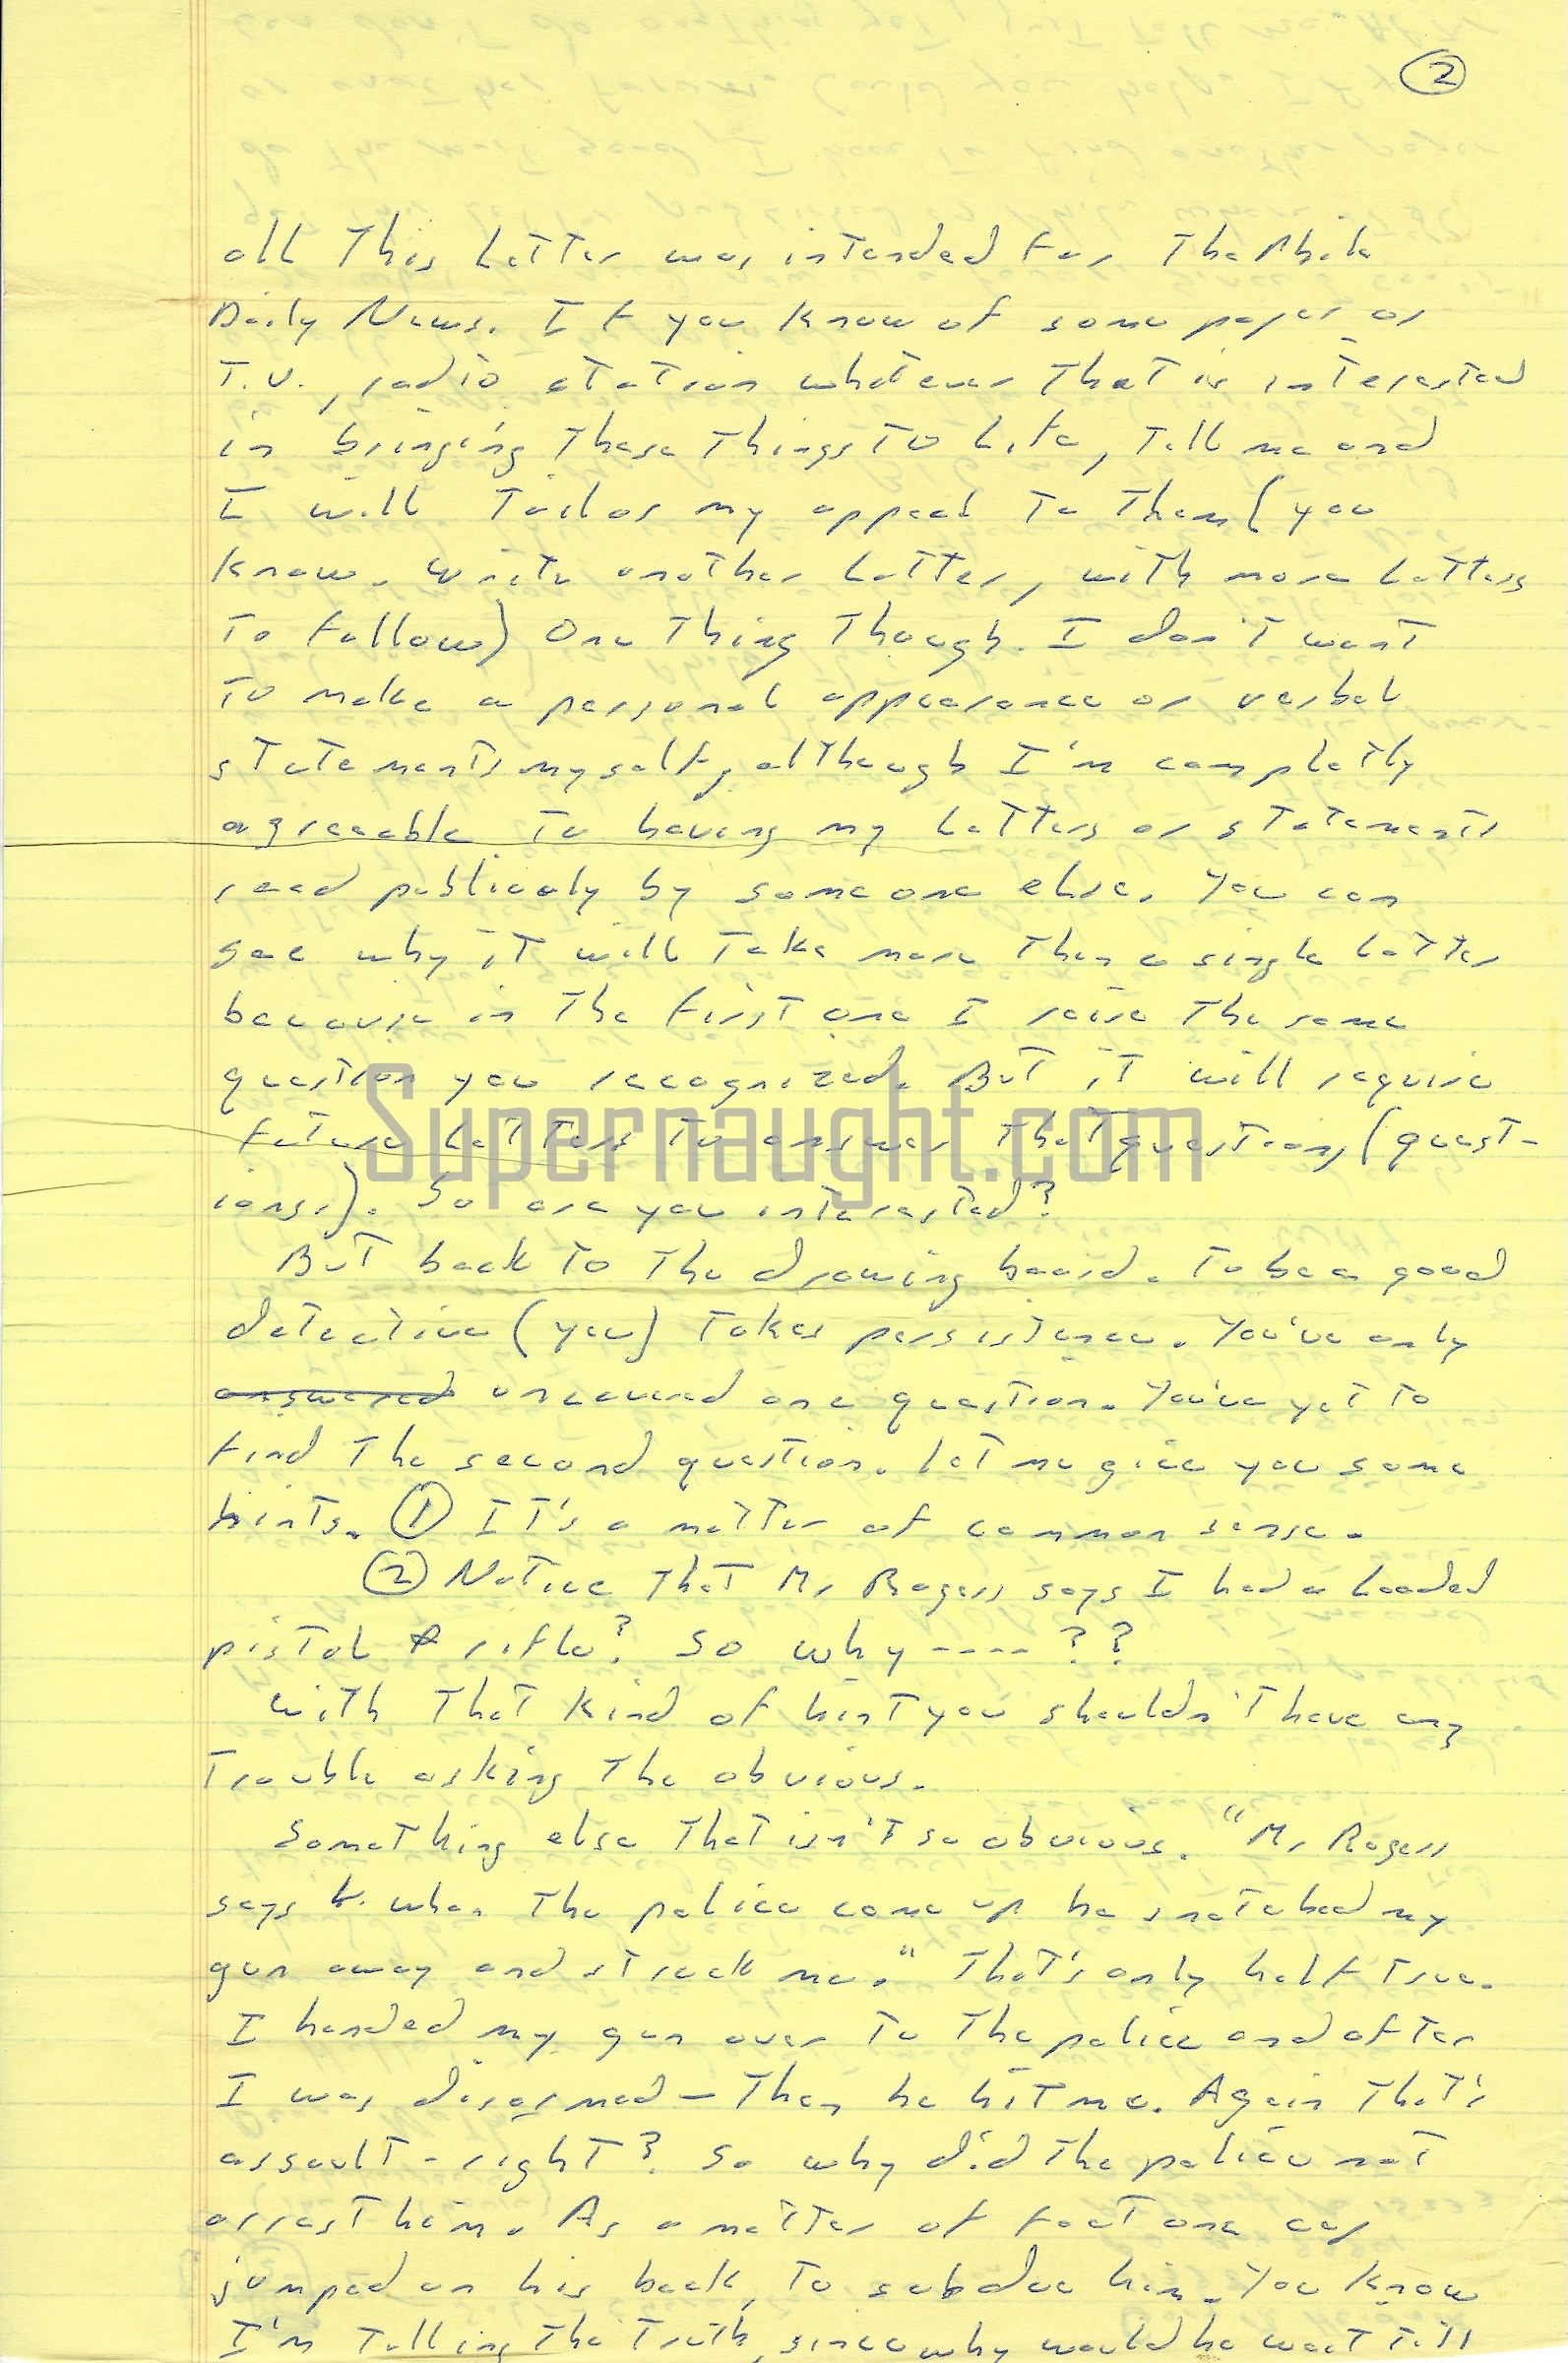 2
all this letter was intended for the Phila
Daily News. If you know of some paper or
T.V., radio station whatever that is interested
in bringing these things to life, tell me and
I will tailor my appeal to them (you
know. write another letter, with more letters
to follow) One thing though. I don't want
to make a personal appearance or verbal
statements myself, although I'm completly
agreeable to having my letters or statements
read publicaly by someone else. You can
see why it will take more then a single letter
because in the first one I raise the same
question you recognized. But it will require
future letters to answer that question, (quest-
ions). So are you interested?
But back to the drawing board. To be a good
detective (you) takes persistence. You've only
answered uncovered one question. You've yet to
find the second question. Let me give you some
hints. ① It's a matter of common sense.
② Notice that Mr Rogers says I had a loaded
pistol & rifle? So why ----??
With that kind of hint you shouldn't have any
trouble asking the obvious.
Something else that isn't so obvious. "Mr Rogers
says when the police come up he snatched my
gun away and struck me." That's only half true.
I handed my gun over to the police and after
I was disarmed - then he hit me. Again that's
assault - right? So why did the police not
arrest him. As a matter of fact one cop
jumped on his back, to subdue him. You know
I'm telling the truth, since why would he wait till
Supernaught.com